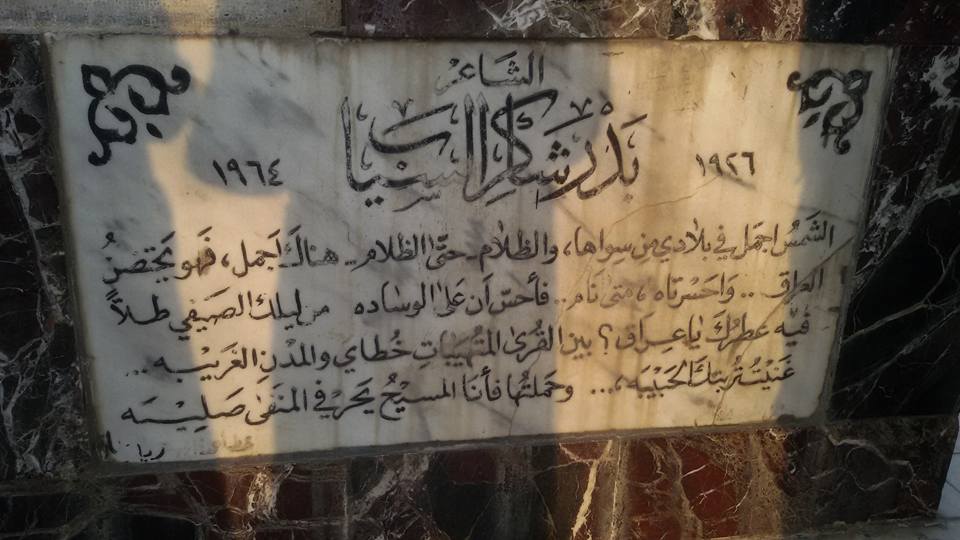 الشاعر
بدر شاكر السياب
١٩٢٦ ١٩٦٤
الشمس اجمل في بلادي من سواها، والظلام - حتى الظلام - هناك اجمل، فهو يحتضنُ
العراق .. واحسرتاه، متى نام .. فأحسّ أن على الوساده من ليلك الصيفي طلاًّ
فيه عطرك ياعراق ؟ بين القرى المتهيبات خطاي والمدن الغريبه ...
غنيتُ تربتك الحبيبه ،... وحملتها فأنا المسيح يجر في المنفى صليبه